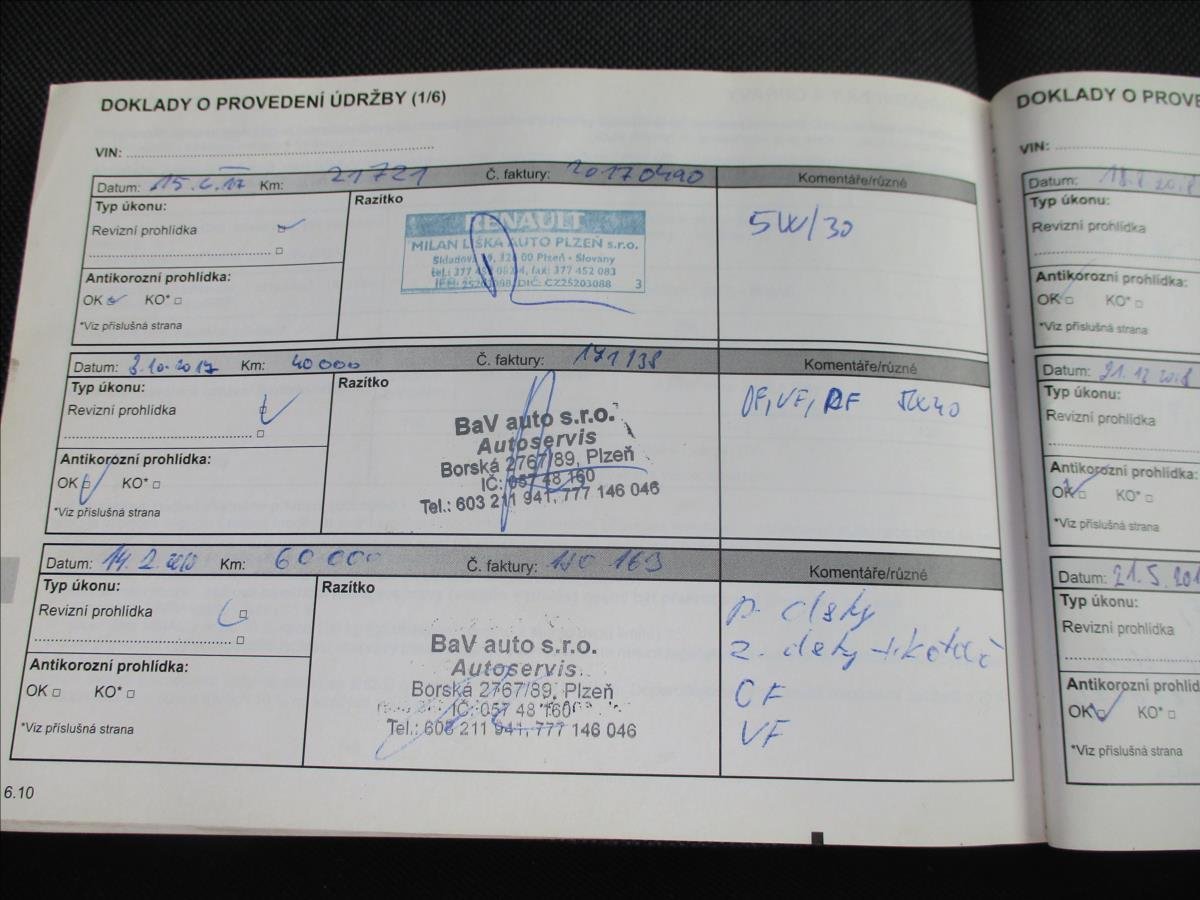 DOKLADY O PROVEDENÍ ÚDRŽBY (1/6)
VIN:
Datum: 15.6.17 Km: 21721 Č. faktury: 20170490 Komentáře/různé
Typ úkonu:
Revizní prohlídka
Antikorozní prohlídka:
OK KO*
*Viz příslušná strana
Razítko
RENAULT
MILAN LIŠKA AUTO PLZEŇ s.r.o.
Skladová 326 00 Plzeň - Slovany
tel.: 377 fax: 377 452 083
DIČ: CZ25203088 3
5W/30
Datum: 3.10.2017 Km: 40000 Č. faktury: 171138 Komentáře/různé
Typ úkonu:
Revizní prohlídka
Antikorozní prohlídka:
OK KO*
*Viz příslušná strana
Razítko
BaV auto s.r.o.
Autoservis
Borská 2767/89, Plzeň
IČ: 057 48 160
Tel.: 603 211 941, 777 146 046
OF, VF,
Datum: 14.2. Km: 60000 Č. faktury: 163 Komentáře/různé
Typ úkonu:
Revizní prohlídka
Antikorozní prohlídka:
OK KO*
*Viz příslušná strana
Razítko
BaV auto s.r.o.
Autoservis
Borská 2767/89, Plzeň
IČ: 057 48 160
Tel.: 603 211 941, 777 146 046
p. desky
z. desky
VF
6.10
DOKLADY O PROVE
VIN:
Datum: 2018
Typ úkonu:
Revizní prohlídka
Antikorozní prohlídka:
OK KO*
*Viz příslušná strana
Datum: 21.12.2018
Typ úkonu:
Revizní prohlídka
Antikorozní prohlídka:
OK KO*
*Viz příslušná strana
Datum: 21.5.201
Typ úkonu:
Revizní prohlídka
Antikorozní prohlíd
OK KO*
*Viz příslušná strana